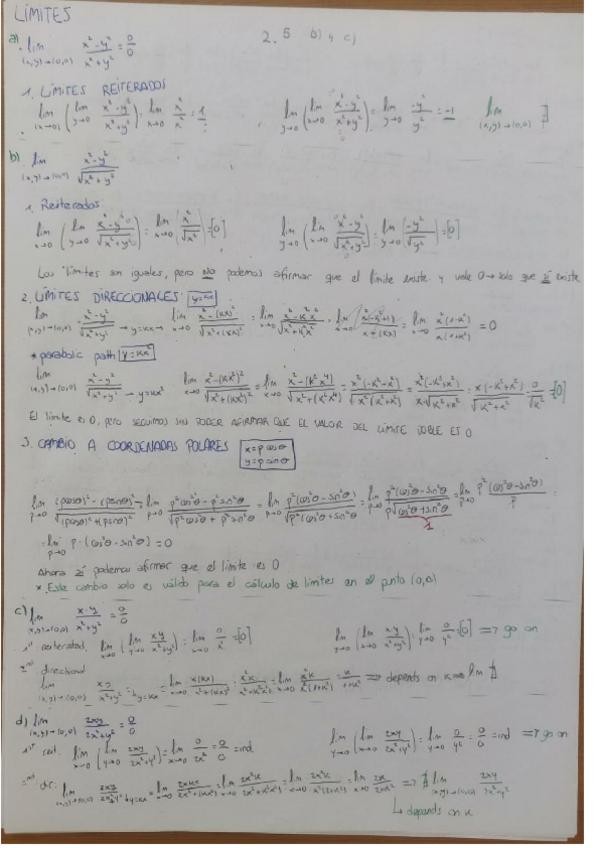 LÍMITES
2.5 b) y c)
a) lim (x,y)→(0,0) x²-y² / x²+y² = 0/0
1. LÍMITES REITERADOS
lim x→0 (lim y→0 x²-y² / x²+y²) = lim x→0 x²/x² = 1 , lim y→0 (lim x→0 x²-y² / x²+y²) = lim y→0 -y²/y² = -1 lim (x,y)→(0,0) ∄
b) lim (x,y)→(0,0) x²-y² / √x²+y²
1. Reiterados
lim x→0 (lim y→0 x²-y² / √x²+y²) = lim x→0 (x²/√x²) = [0] lim y→0 (lim x→0 x²-y² / √x²+y²) = lim y→0 (-y²/√y²) = [0]
Los límites son iguales, pero NO podemos afirmar que el límite existe y vale 0 → solo que sí existe
2. LÍMITES DIRECCIONALES y=kx
lim (x,y)→(0,0) x²-y² / √x²+y² → y=kx → lim x→0 x²-(kx)² / √x²+(kx)² = lim x→0 x²-k²x² / √x²+k²x² = lim x→0 = lim x→0 = 0
* parabolic path y=kx²
lim (x,y)→(0,0) x²-y² / √x²+y² → y=kx² lim x→0 x²-(kx²)² / √x²+(kx²)² = lim x→0 x²-(k²x⁴) / √x²+(k²x⁴) = [0]
El límite es 0, pero SEGUIMOS SIN PODER AFIRMAR QUE EL VALOR DEL LÍMITE DOBLE ES 0
3. CAMBIO A COORDENADAS POLARES x=ρcosθ y=ρsinθ
lim ρ→0 (ρcosθ)²-(ρsinθ)² / √(ρcosθ)²+(ρsinθ)² = lim ρ→0 ρ²cos²θ-ρ²sin²θ / √ρ²cos²θ+ρ²sin²θ = lim ρ→0 ρ²(cos²θ-sin²θ) / √ρ²(cos²θ+sin²θ) = lim ρ→0 ρ²(cos²θ-sin²θ) / ρ√cos²θ+sin²θ 1 = lim ρ→0 ρ²(cos²θ-sin²θ) / ρ =
= lim ρ→0 ρ·(cos²θ-sin²θ) = 0
Ahora sí podemos afirmar que el límite es 0
* Este cambio solo es válido para el cálculo de límites en el punto (0,0)
c) lim (x,y)→(0,0) x·y / x²+y² = 0/0
1st reiterated lim x→0 (lim y→0 xy / x²+y²) = lim x→0 0/x² = [0] lim y→0 (lim x→0 xy / x²+y²) = lim y→0 0/y² = [0] ⇒ go on
2nd directional
lim (x,y)→(0,0) xy / x²+y² → y=kx = lim x→0 x(kx) / x²+(kx)² = lim x→0 x²k / x²+k²x² = lim x→0 x²k / x²(1+k²) = k / 1+k² ⇒ depends on k ⇒ lim ∄
d) lim (x,y)→(0,0) 2xy / 2x²+y² = 0/0
1st reit. lim x→0 (lim y→0 2xy / 2x²+y²) = lim x→0 0/2x² = 0/0 = ind. lim y→0 (lim x→0 2xy / 2x²+y²) = lim y→0 0/y² = 0/0 = ind ⇒ go on
2nd dir: lim (x,y)→(0,0) 2xy / 2x²+y² → y=kx = lim x→0 2xkx / 2x²+(kx)² = lim x→0 2x²k / 2x²+k²x² = lim x→0 2x²k / x²(2+k²) = lim x→0 ⇒ ∄ lim (x,y)→(0,0) 2xy / 2x²+y²
↳ depends on k